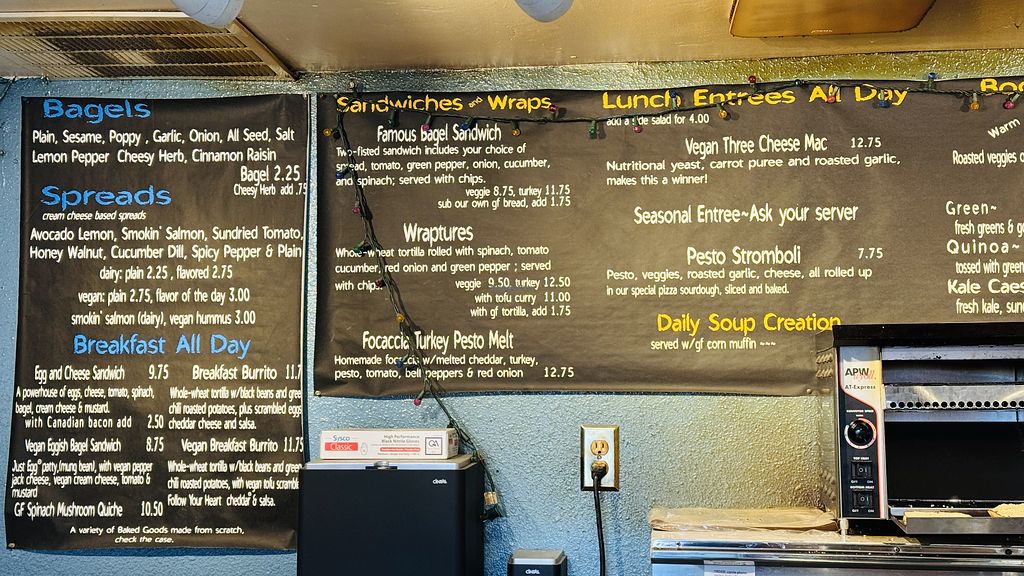 Bagels
Plain, Sesame, Poppy , Garlic, Onion, All Seed, Salt
Lemon Pepper Cheesy Herb, Cinnamon Raisin
Bagel 2.25
Cheesy Herb add .75
Spreads
cream cheese based spreads
Avocado Lemon, Smokin' Salmon, Sundried Tomato,
Honey Walnut, Cucumber Dill, Spicy Pepper & Plain
dairy: plain 2.25 , flavored 2.75
vegan: plain 2.75, flavor of the day 3.00
smokin' salmon (dairy), vegan hummus 3.00
Breakfast All Day
Egg and Cheese Sandwich 9.75
A powerhouse of eggs, cheese, tomato, spinach,
bagel, cream cheese & mustard.
with Canadian bacon add 2.50
Vegan Eggish Bagel Sandwich 8.75
Just Egg patty,(mung bean), with vegan pepper
jack cheese, vegan cream cheese, tomato &
mustard
GF Spinach Mushroom Quiche 10.50
Breakfast Burrito 11.7
Whole-wheat tortilla w/black beans and gree
chili roasted potatoes, plus scrambled eggs
cheddar cheese and salsa.
Vegan Breakfast Burrito 11.75
Whole-wheat tortilla w/black beans and gree
chili roasted potatoes, with vegan tofu scramble
Follow Your Heart cheddar & salsa.
A variety of Baked Goods made from scratch,
check the case.
Sandwiches and Wraps
Famous Bagel Sandwich
Two-fisted sandwich includes your choice of
spread, tomato, green pepper, onion, cucumber,
and spinach; served with chips.
veggie 8.75, turkey 11.75
sub our own gf bread, add 1.75
Wraptures
Whole-wheat tortilla rolled with spinach, tomato
cucumber, red onion and green pepper ; served
with chips. veggie 9.50 turkey 12.50
with tofu curry 11.00
with gf tortilla, add 1.75
Focaccia Turkey Pesto Melt
Homemade focaccia w/melted cheddar, turkey,
pesto, tomato, bell peppers & red onion 12.75
Lunch Entrees All Day
add a side salad for 4.00
Vegan Three Cheese Mac 12.75
Nutritional yeast, carrot puree and roasted garlic,
makes this a winner!
Seasonal Entree~Ask your server
Pesto Stromboli 7.75
Pesto, veggies, roasted garlic, cheese, all rolled up
in our special pizza sourdough, sliced and baked.
Daily Soup Creation
served w/gf corn muffin ~~~
Warm
Roasted veggies
Green~
fresh greens & g
Quinoa~
tossed with green
Kale Caes
fresh kale, sun
Sysco
Classic
High Performance
Black Nitrile Gloves
QA
APW
AT-Express